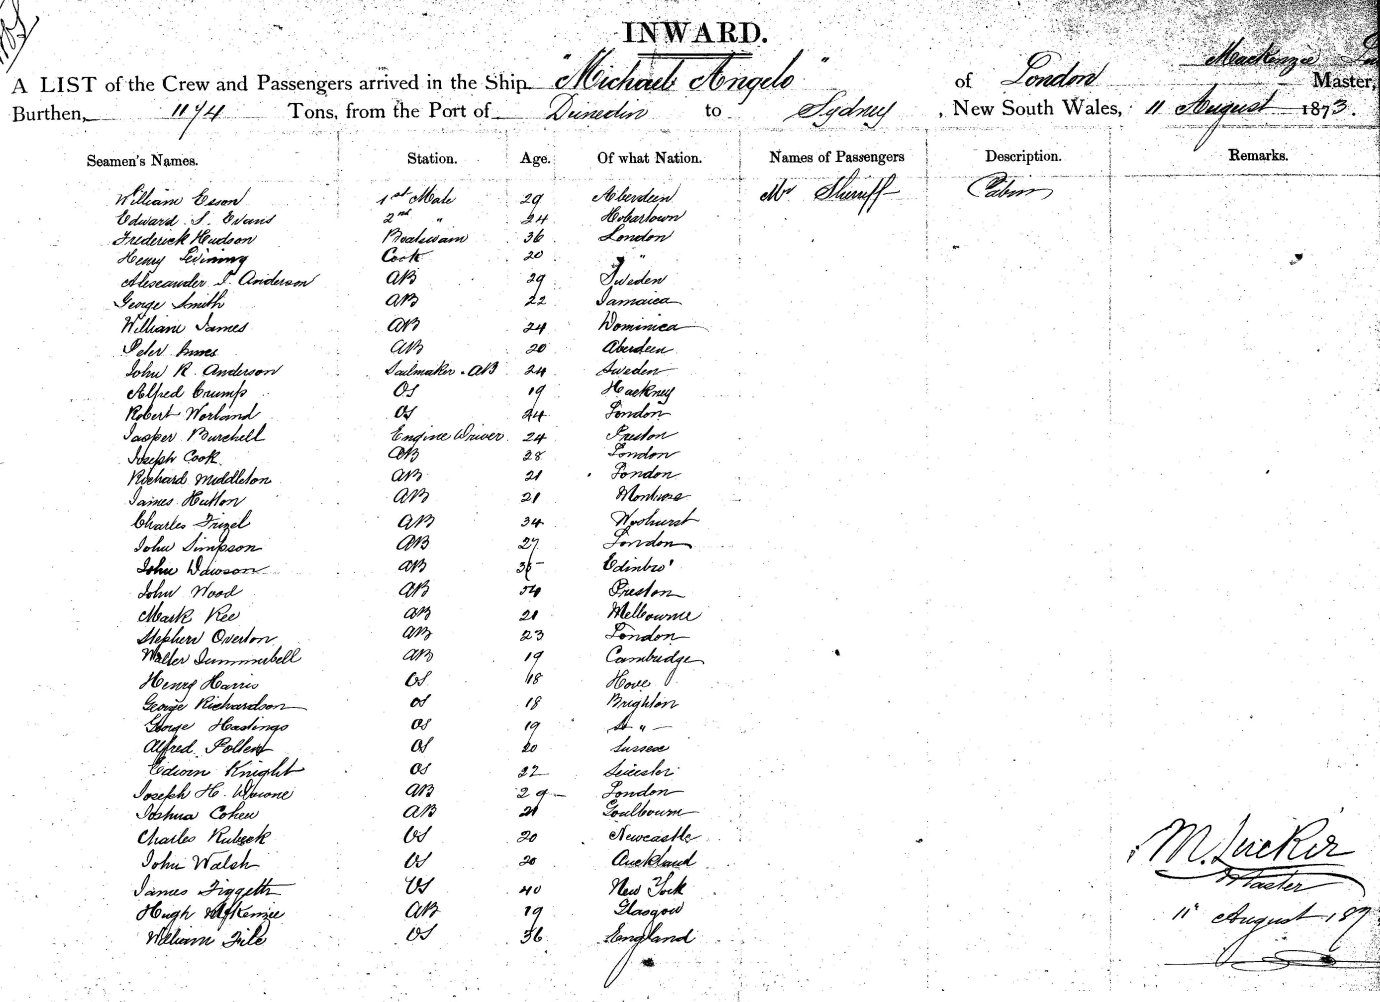 INWARD.
Mackenzie
A LIST of the Crew and Passengers arrived in the Ship "Michael Angelo" of London Master,
Burthen, 1174 Tons, from the Port of Dunedin to Sydney, New South Wales, 11 August 1873.
Seamen's Names. Station. Age. Of what Nation. Names of Passengers Description. Remarks.
William Esson 1st Mate 29 Aberdeen Mr Sherriff Cabin
Edward S. Evans 2nd " 24 Hobartown
Frederick Hudson Boatswain 36 London
Henry Cook 20 "
Alexander T. Anderson AB 29 Sweden
George Smith AB 22 Jamaica
William James AB 24 Dominica
Peter Innes AB 20 Aberdeen
John R. Anderson Sailmaker - AB 24 Sweden
Alfred Crump OS 19 Hackney
Robert Worland OS 24 London
Jasper Burchell Engine Driver 24 Preston
Joseph Cook AB 28 London
Richard Middleton AB 21 London
James Hutton AB 21 Montrose
Charles Frizel AB 34
John Simpson AB 27 London
John Dawson AB 35 Edinbro'
John Wood AB Preston
Mark Kee AB 21 Melbourne
Stephen Overton AB 23 London
Walter Summerbell AB 19 Cambridge
Henry Harris OS 18 Hove
George Richardson OS 18 Brighton
George Hastings OS 19 "
Alfred OS 20 Sussex
Edwin Knight OS 22 Leicester
Joseph H. AB 29 London
Joshua Cohen AB 21 Goulbourn
Charles Rubeck OS 20 Newcastle
John Walsh OS 20 Auckland
James OS 40 New York
Hugh McKenzie AB 19 Glasgow
William File OS 36 England
M. Tucker
Master
11 August 187